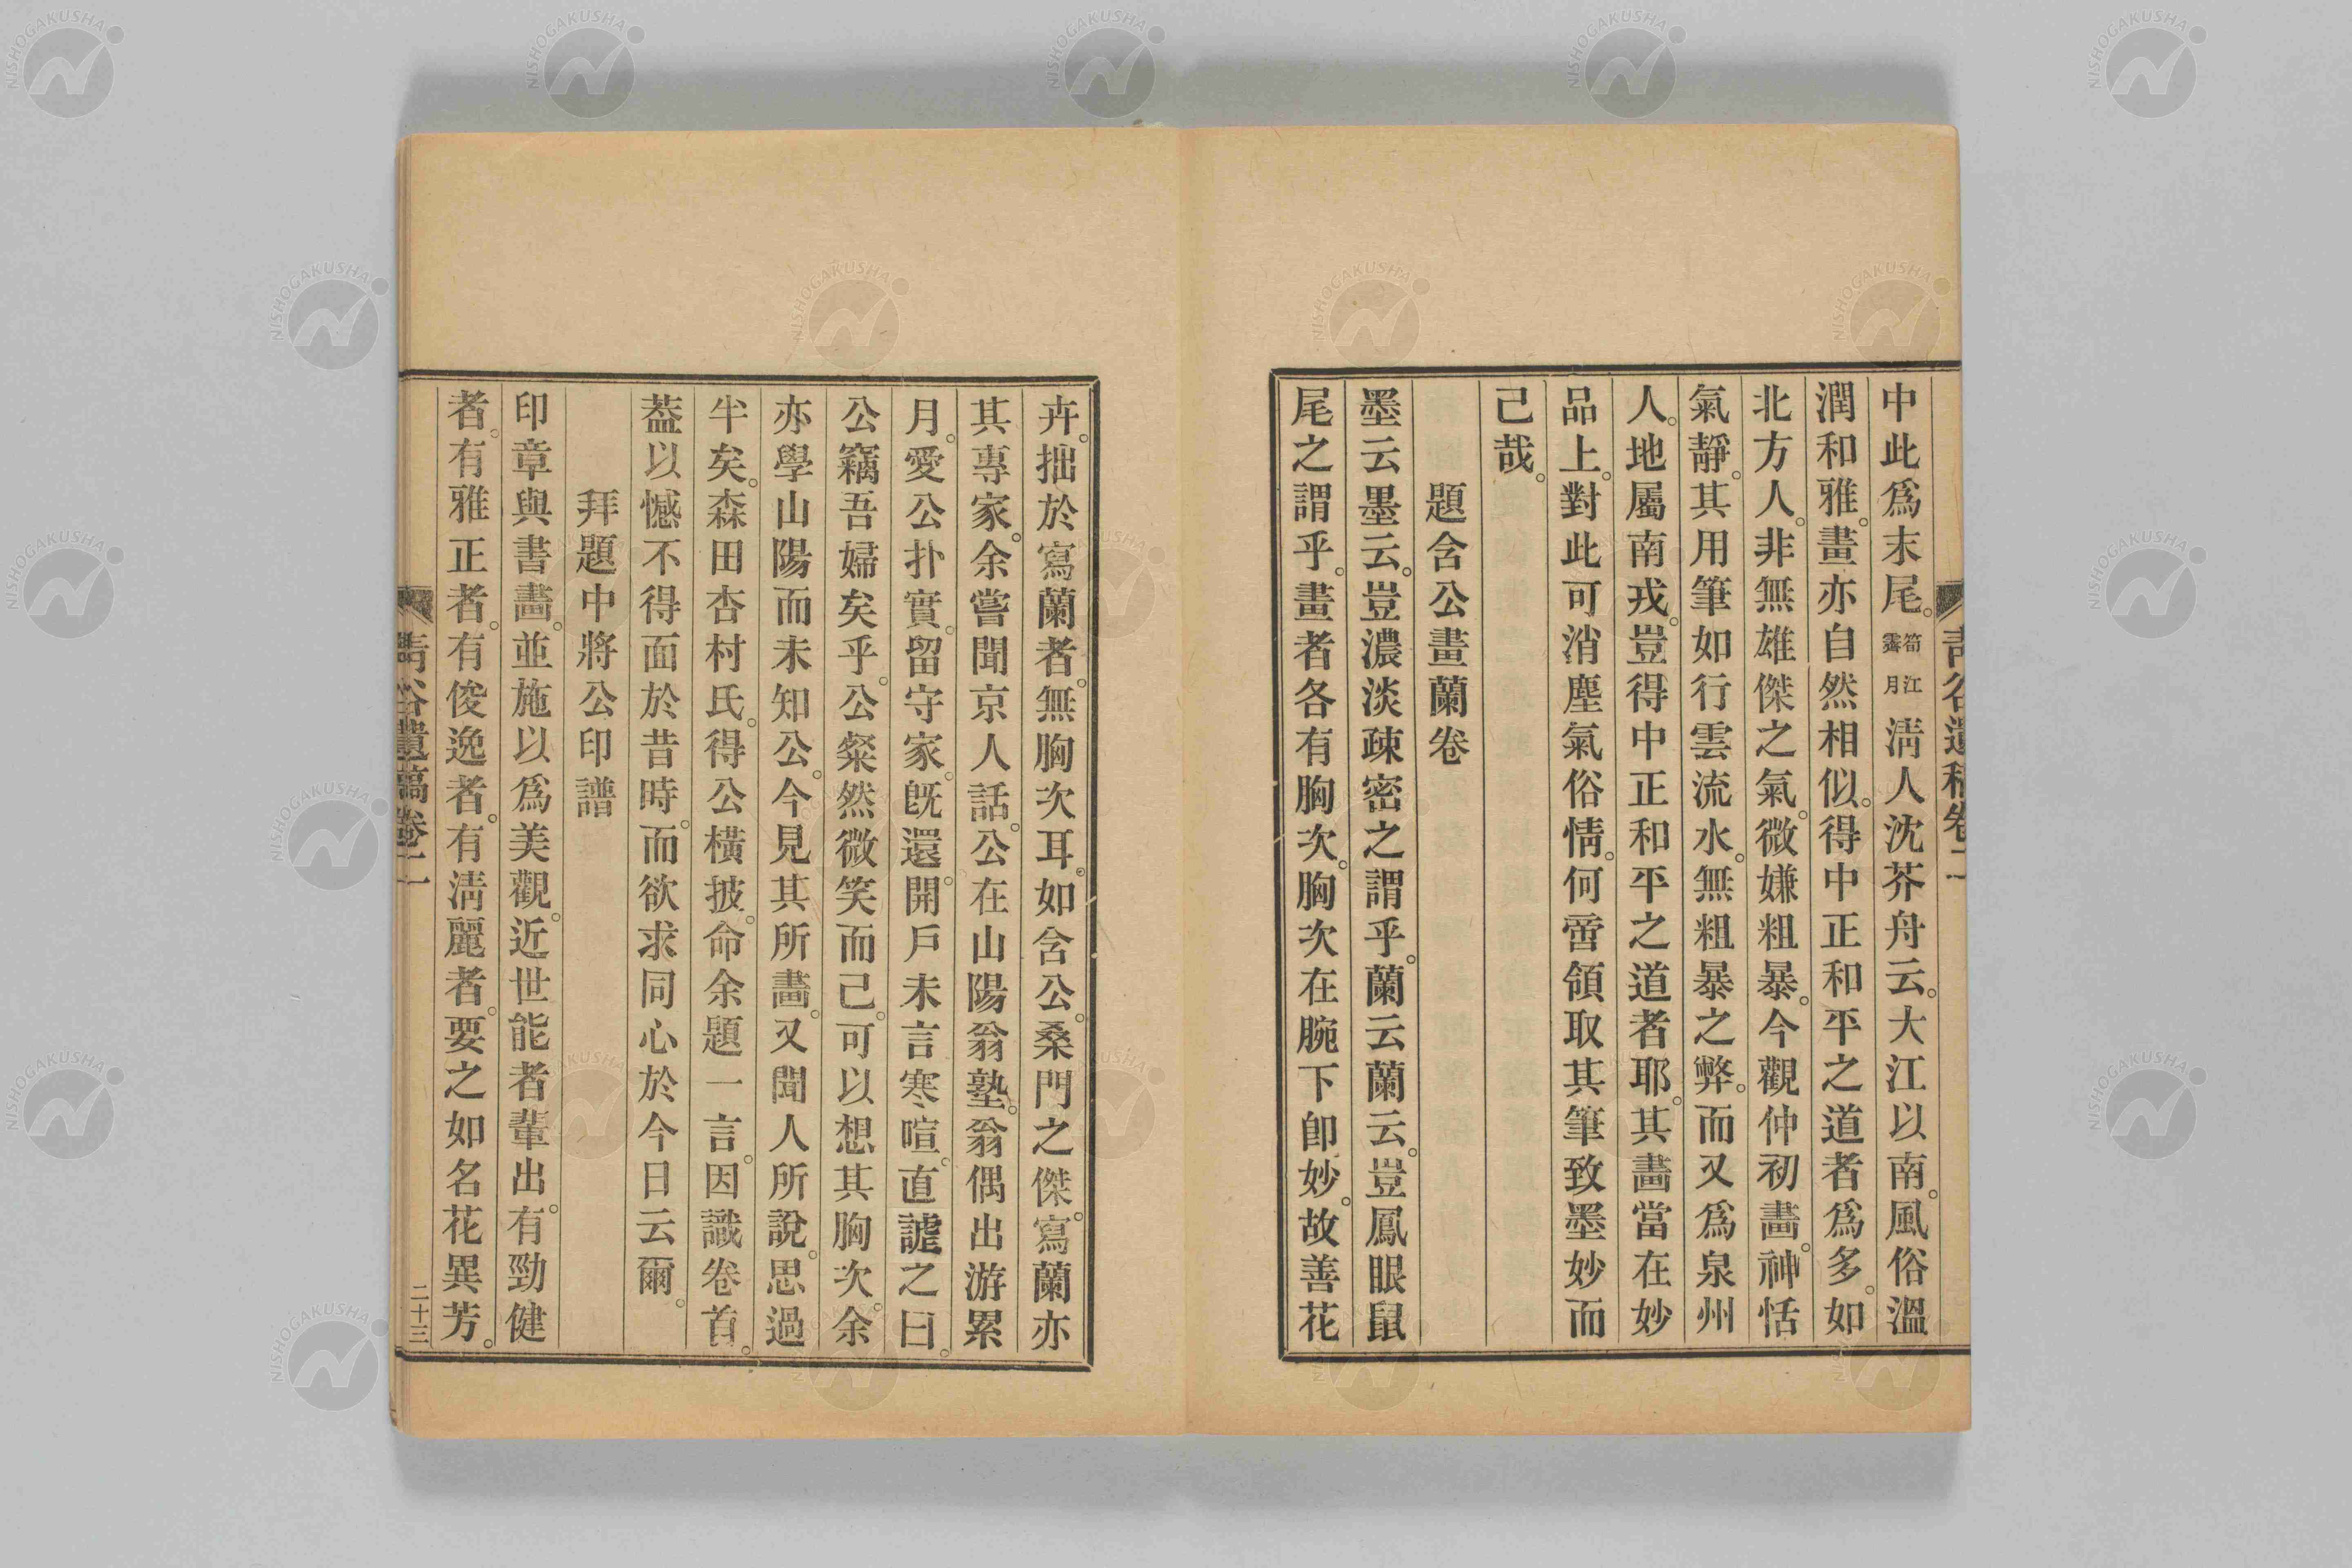 中此爲末尾。筍江霽月淸人沈芥舟云。大江以南。風俗溫
潤和雅。畫亦自然相似。得中正和平之道者爲多。如
北方人。非無雄傑之氣。微嫌粗暴。今觀仲初畫。神恬
氣靜。其用筆如行雲流水。無粗暴之弊。而又爲泉州
人。地屬南戎。豈得中正和平之道者耶。其畫當在妙
品上。對此可消塵氣俗情。何啻領取其筆致墨妙而
己哉。
題含公畫蘭卷
墨云墨云。豈濃淡疎密之謂乎。蘭云蘭云。豈鳳眼鼠
尾之謂乎。畫者各有胸次。胸次在腕下卽妙。故善花
卉。拙於寫蘭者。無胸次耳。如含公。桑門之傑。寫蘭亦
其專家。余嘗聞京人話。公在山陽翁塾。翁偶出游累
月。愛公扑實。留守家。旣還。開戶未言寒喧。直謔之曰。
公竊吾婦矣乎。公粲然微笑而己。可以想其胸次。余
亦學山陽而未知公。今見其所畫。又聞人所說。思過
半矣。森田杏村氏。得公橫披。命余題一言。因識卷首。
葢以憾不得面於昔時。而欲求同心於今日云爾。
拜題中將公印譜
印章與書畵。並施以爲美觀。近世能者輩出。有勁健
者。有雅正者。有俊逸者。有淸麗者。要之如名花異芳。
遺稿卷二
二十三
NISHOGAKUSHA